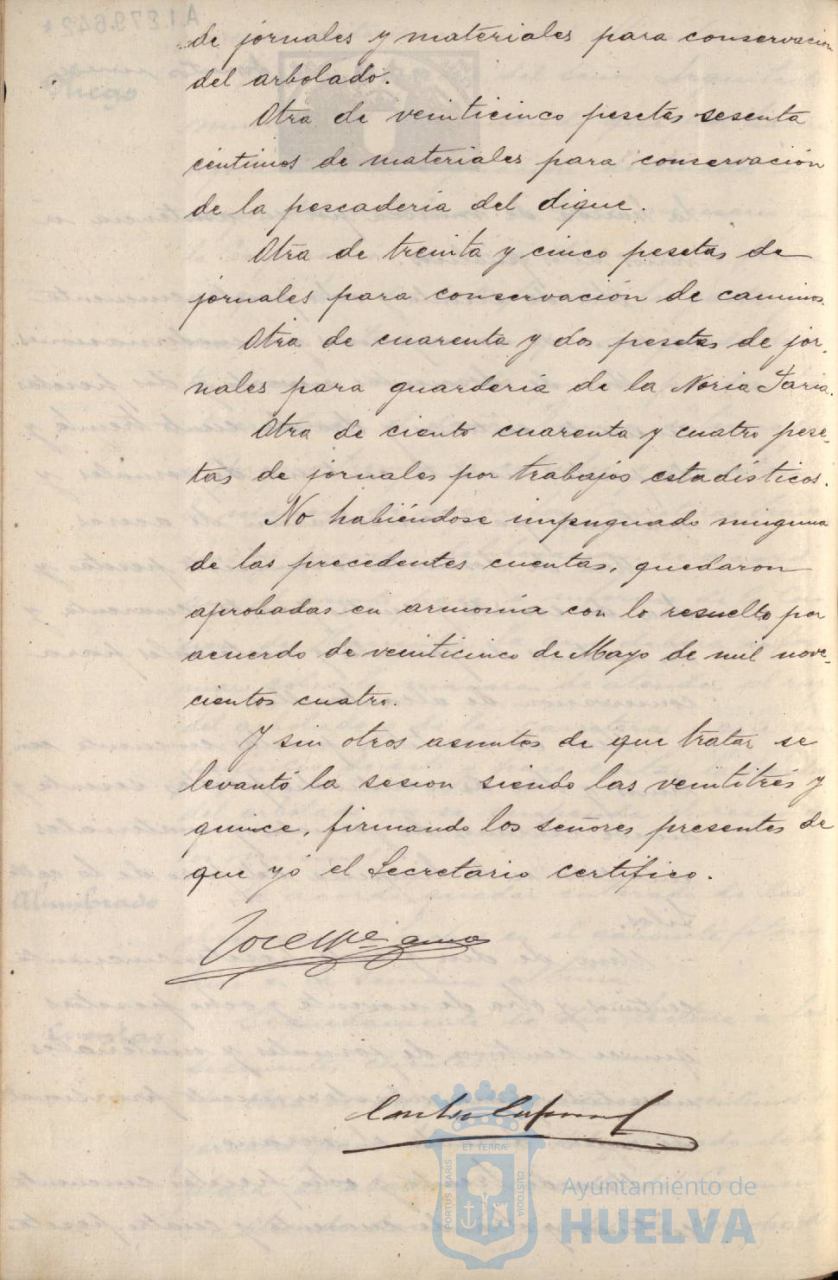 de jornales y materiales para conservacion
del arbolado.
Otra de veinticinco pesetas sesenta
céntimos de materiales para conservación
de la pescadería del dique.
Otra de treinta y cinco pesetas de
jornales para conservación de caminos.
Otra de cuarenta y dos pesetas de jor-
nales para guardería de la Noria
Otra de ciento cuarenta y cuatro pese-
tas de jornales por trabajos estadísticos.
No habiéndose impugnado ninguna
de las precedentes cuentas, quedaron
aprobadas en armonía con lo resuelto por
acuerdo de veinticinco de Mayo de mil nove-
cientos cuatro.
Y sin otros asuntos de que tratar se
levantó la sesion siendo las veintitrés y
quince, firmando los señores presentes de
que yó el Secretario certifico.
PORTUS MARIS ET TERRÆ CUSTODIA
Ayuntamiento de
HUELVA